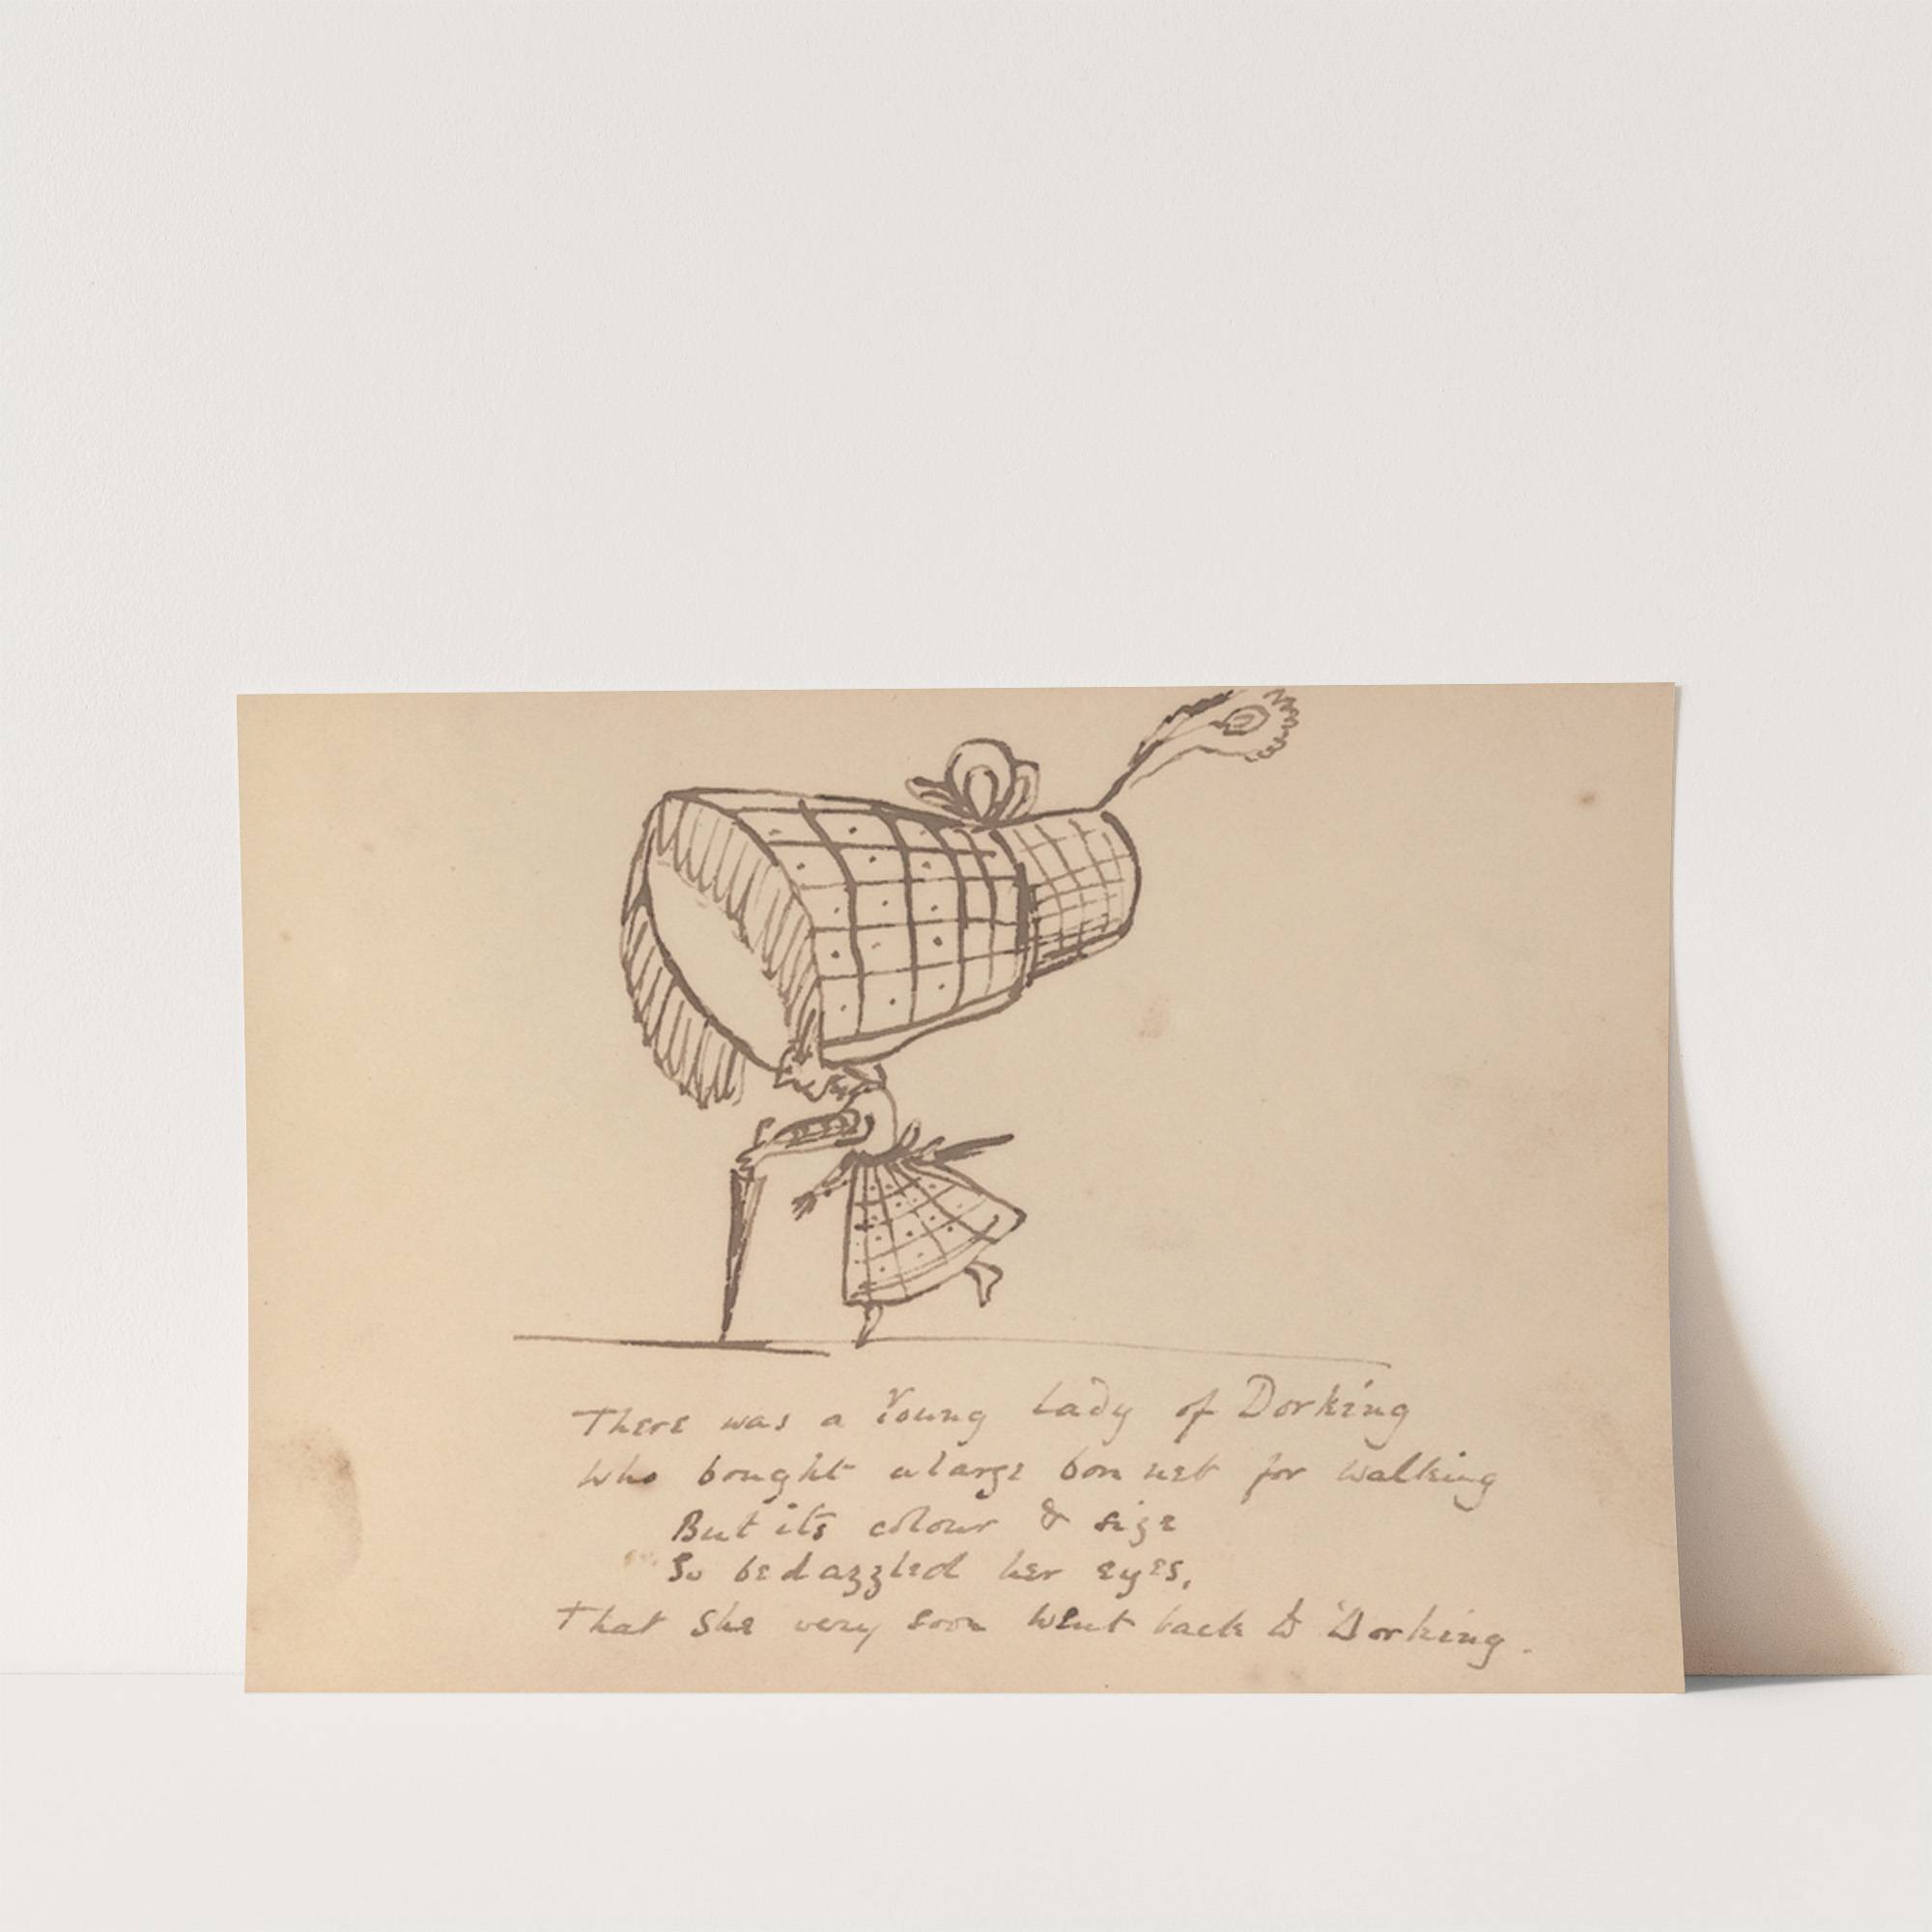 There was a Young Lady of Dorking
Who bought a large bonnet for walking
But its colour & size
So bedazzled her eyes,
That she very soon went back to Dorking.